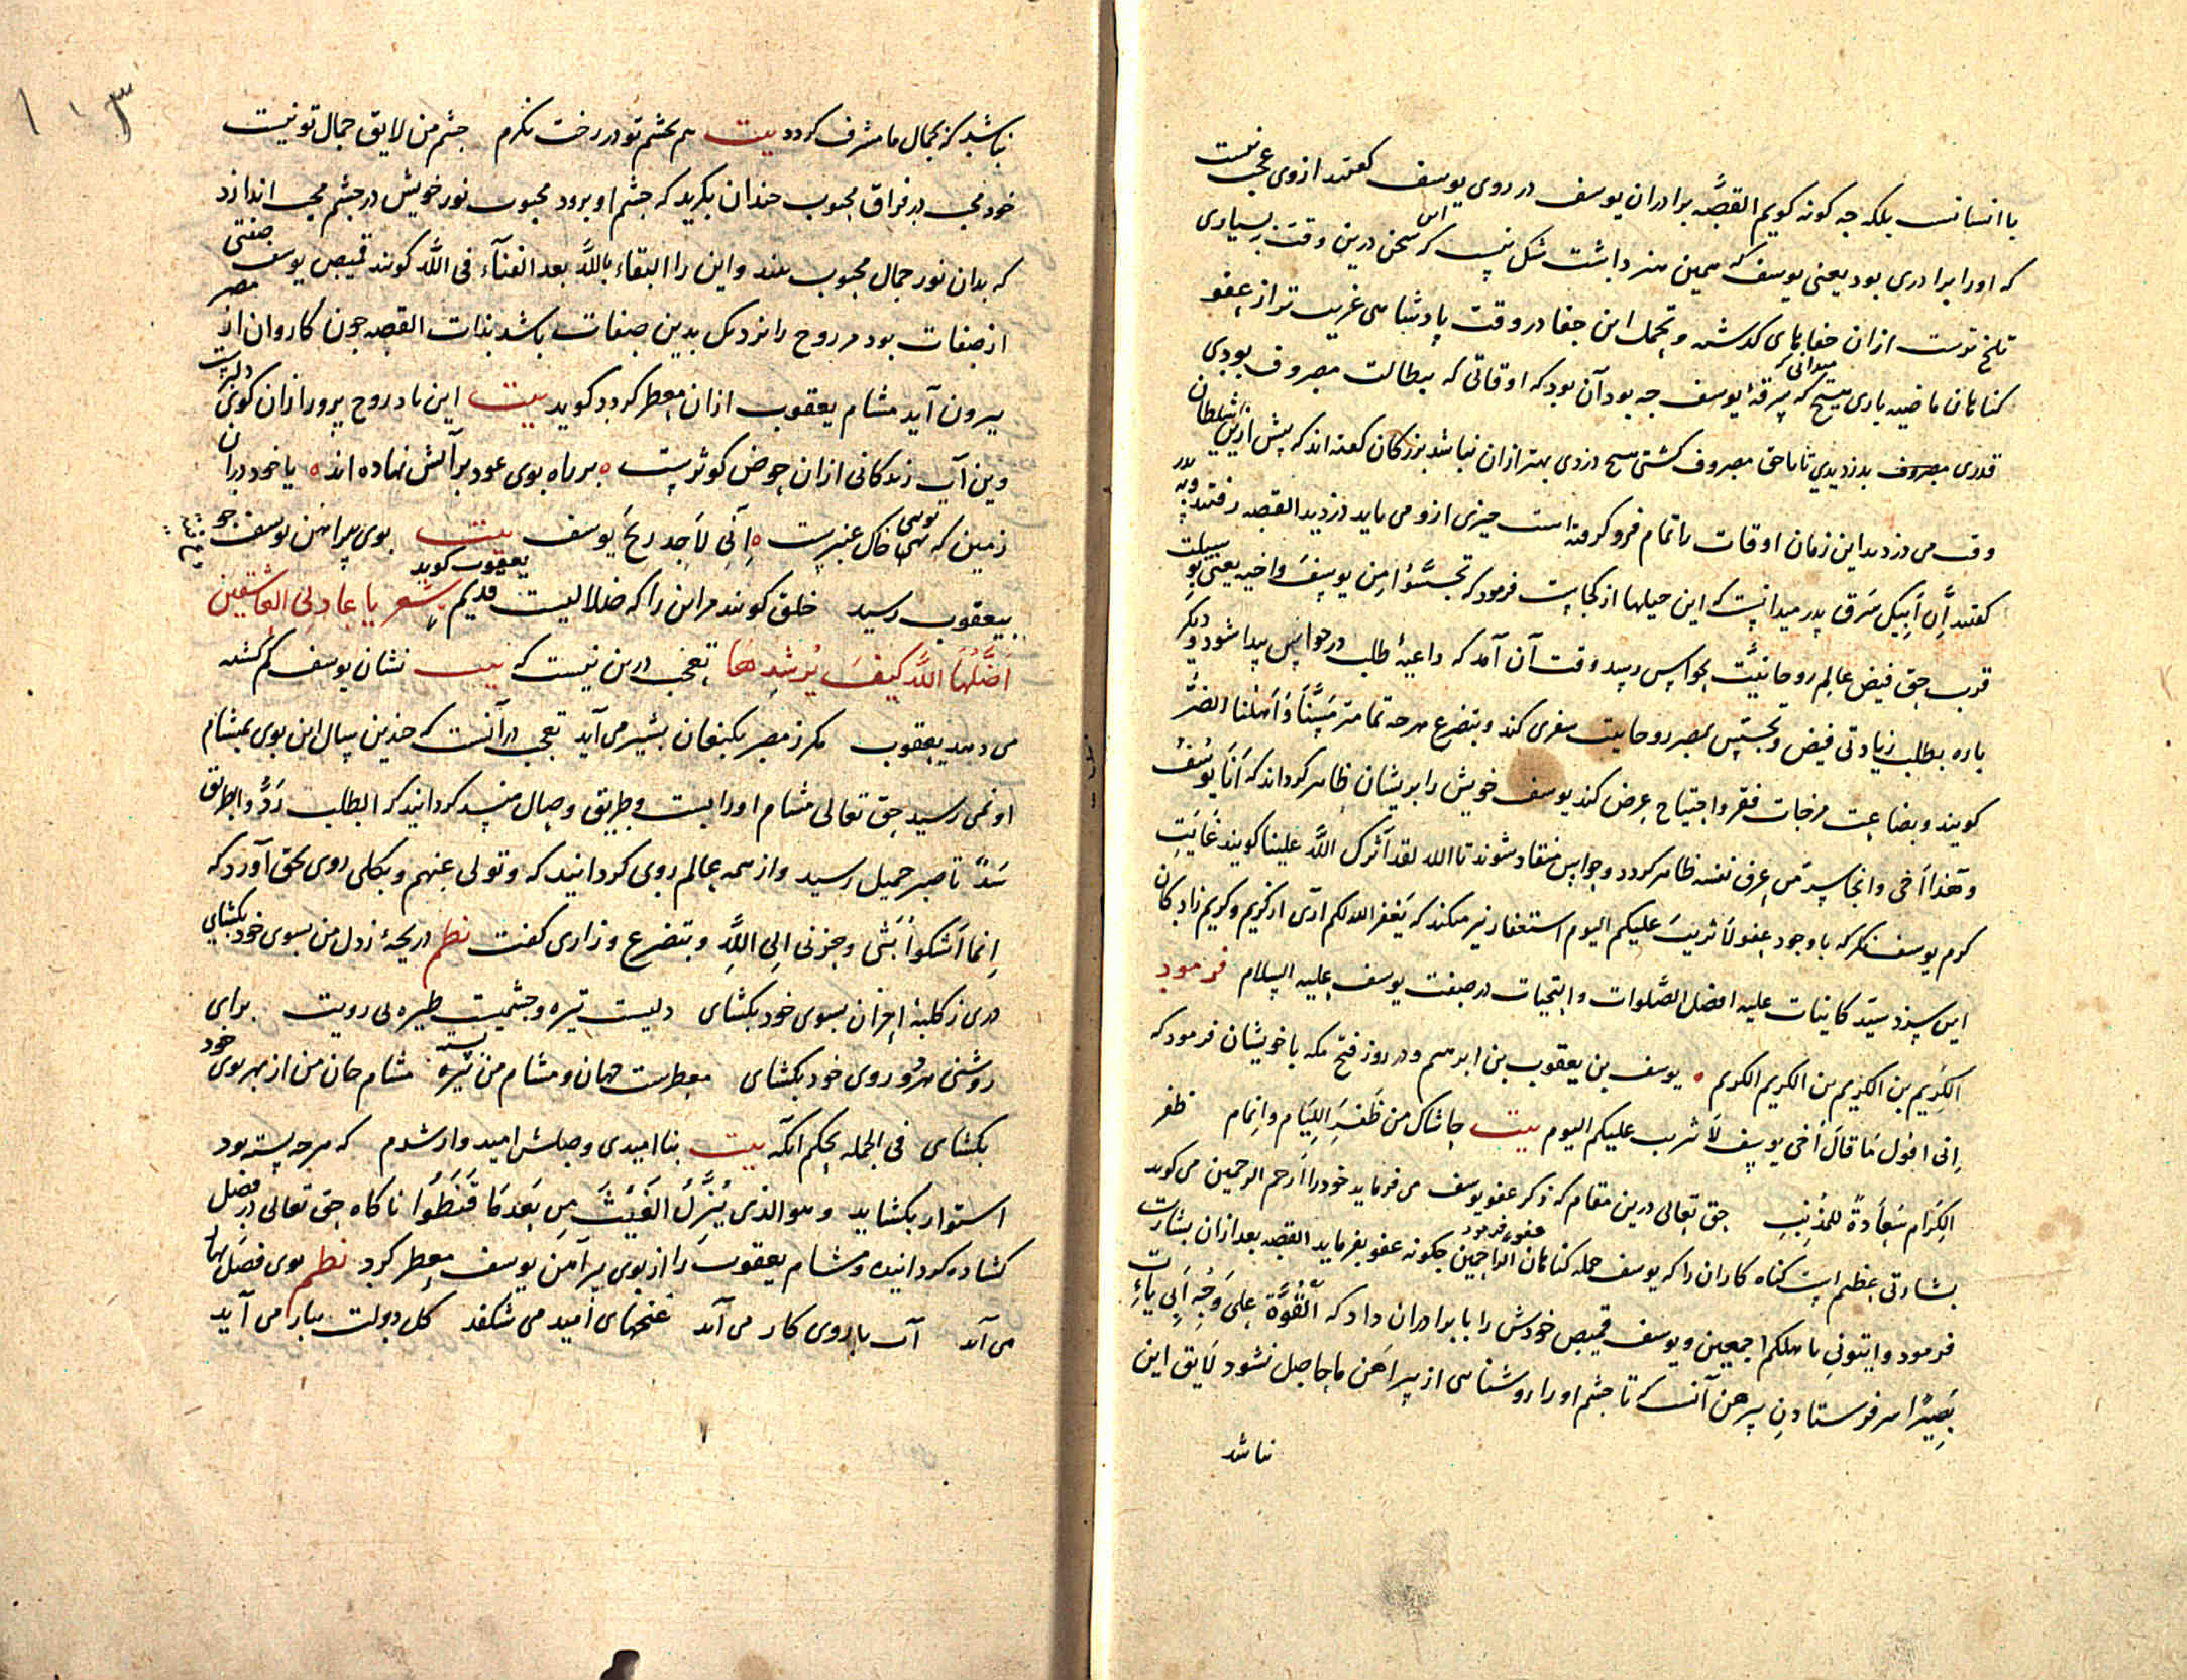 با انسانست بلکه چه کونه کویم القصّه برادران یوسف در روی یوسف کفتند از وی عجب نیست
که او را برادری بود یعنی یوسف که همین هنر داشت شک نیست که این سخن درین وقت بسیاری
تلخ ترست ازان جفاهای کذشته و تحمل این جفا در وقت پادشاهی غریب تر از عفو
کناهان ماضیه باری هیچ میدانی که سرقهٔ یوسف چه بود آن بود که اوقاتی که ببطالت مصروف بودی
قدری مصروف بدزدیدی تا بحق مصروف کشتی هیچ دزدی بهتر ازان نباشد بزرکان کفته اند که پیش ازین شیطان
وقت می دزدید این زمان اوقات را تمام فرو کرفته است چیزی ازو می باید دزدید القصه رفتند و به پدر
کفتند اِنَّ اَبنَکَ سَرَق پدر میدانست که این حیلها از کجاست فرمود که تجسّسوُا مِن یوسفَ واخیه یعنی بوسیلت
قرب حق فیض عالم روحانیّت بحواس رسید وقت آن آمد که داعیهٔ طلب در حواس پیدا شود و دیکر
باره بطلب زیادتی فیض و تجسّس بمصر روحانیت سفری کند و بتضرع هرچه تمامتر مَسَّنَا وَاَهْلَنَا الضُرُّ
کویند و بضاعت مزجات فقر و احتیاج عرض کند یوسف خویش را بریشان ظاهر کرداند که اَنَا یُوسُفُ
وَهَذا اَخی و انجا سرّ من عرف نفسه ظاهر کردد و حواس منقاد شوند تا الله لقد آثرک اللّه علینا کویند غایت
کرم یوسف نکر که باوجود عفو لَا تثریبَ علیکم الیوم استغفار نیز میکند که یَغفر الله لکم آری از کریم و کریم زادکان
این سزد سیّد کاینات علیه افضل الصّلوات و التحیات در صفت یوسف علیه السلام فرمود
الکریم بن الکریم بن الکریم الکریم ۰ یوسف بن یعقوب بن ابرهیم و در روز فتح مکه با خویشان فرمود که
اِنی اقول مَا قالَ اَخی یوسف لَا تثریب علیکم الیوم بیت حاشاک من ظَفَرِ اللِّیَام وانما ظفر
الکِرَام سَعَادةً للمُذْنِبِ حق تعالی درین مقام که ذکر عفو یوسف می فرماید خود را ارحم الرحمین می کوید
بشارتی عظیم است کناه کاران را که یوسف جمله کناهان عفو فرمود ارحم الراحمین چکونه عفو بفرماید القصه بعد ازان بشارت
فرمود وایتونی باهلکم اجمعین و یوسف قمیص خودش را با برادران داد که اَلْقُوْهُ عَلی وَجْهِ اَبی یَأتِ
بَصِیْرًا سر فرستادن پیرهن آنست که تا چشم او را روشنائی از پیراهن ما حاصل نشود لایق این
نباشد
۱۰۳
نباشد که بجمال ما مشرف کردد بیت هم بچشم تو در رخت نکرم چشم من لایق جمال تو نیست
خود محب در فراق محبوب چندان بکرید که چشم او برود محبوب نور خویش در چشم محب اندازد
که بدان نور جمال محبوب بیند و این را البقاء بالله بعد الفنآء فی اللّه کویند قمیص یوسف صفتی
از صفات بود مر روح را نزدیک بدین صفات باشد بذات القصه چون کاروان از مصر
بیرون آید مشام یعقوب ازان معطر کردد کوید بیت این باد روح پرور ازان کوی دلبرست
وین آب زندکانی ازان حوض کوثرست ۰ بر راه بوی عود بر آتش نهاده اند ۰ یا خود دران
زمین که توئی خاک عنبرست ۰ اِنّی لَاَجِد ریحَ یوسف بیت بوی پیراهن یوسف چو
بیعقوب رسید خلق کویند مر این را که ضلالیست قدیم یعقوب کوید شعر یا عاذلی العاشقین
اَضَلَّهَا اللّه کیفَ یُرْشِدهَا تعجب درین نیست که بیت نشان یوسف کم کشته
می دهد یعقوب مکر ز مصر بکنعان بشیر می آید تعجب در آنست که چندین سال این بوی بمشام
او نمی رسید حق تعالی مشام او را بست و طریق وصال منسد کردانید که الطلب رَدٌّ والطریق
سَدٌّ تا صبر جمیل رسید و از همه عالم روی کردانید که وتولی عنهم و بکلی روی بحق آورد که
اِنما اَشکوا بَثّی وحزنی اِلی اللّهِ و بتضرع و زاری کفت نظم دریچهٔ ز دل من بسوی خود بکشای
دری ز کلبهٔ احزان بسوی خود بکشای دلیست تیره و چشمیست طیره بی رویت برای
روشنی هردو روی خود بکشای معطرست جهان و مشام من بسته مشام جان من از بهر بوی خود
بکشای فی الجمله بحکم آنکه بیت بنا امیدی وصلش امیدوار شدم که هرچه بسته بود
استوار بکشاید وهو الذی یُنَزِّلُ الغَیْثَ مِن بَعْدِ مَا قَنَطُوا ناکاه حق تعالی در فصل
کشاده کردانیده و مشام یعقوب را از بوی پیرآهن یوسف معطر کرد نظم بوی فصل بهار
می آید آب با روی کار می آید غنچهای امید می شکفد کل دولت ببار می آید